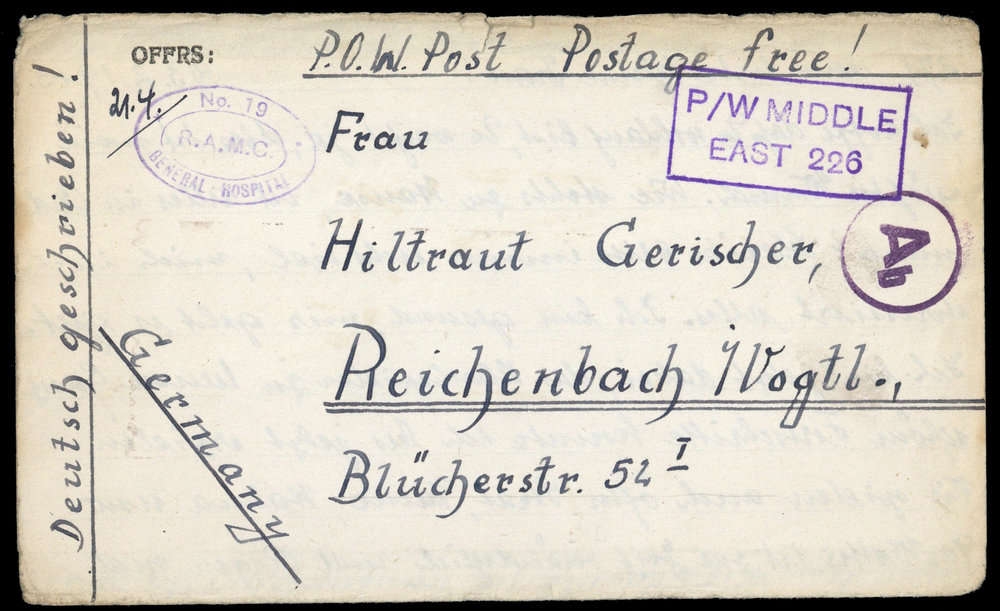 Deutsch geschrieben!
OFFRS:
P.O.W. Post Postage free!
21.4.
No. 19
R.A.M.C.
GENERAL HOSPITAL
P/W MIDDLE
EAST 226
Frau
Hiltraut Gerischer,
Ab
Reichenbach /Vogtl.,
Blücherstr. 52 I
Germany